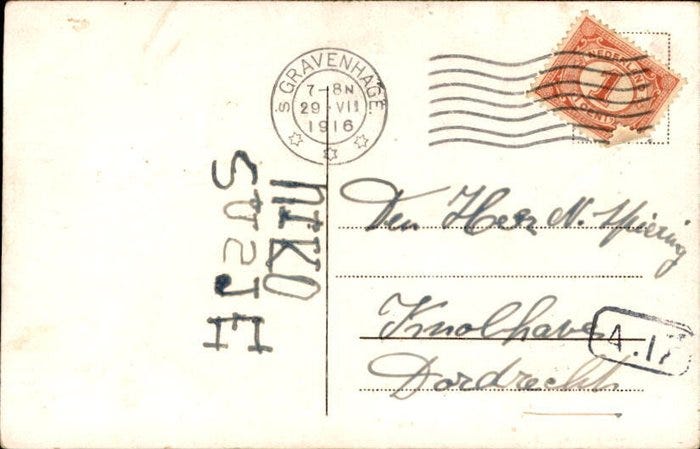 'S GRAVENHAGE.
7-8N
29 VII
1916
NEDERLAND
1
CENT
NIKO
SUSJE
Den Heer N. Spiering
Knolhaven
Dordrecht
A.17